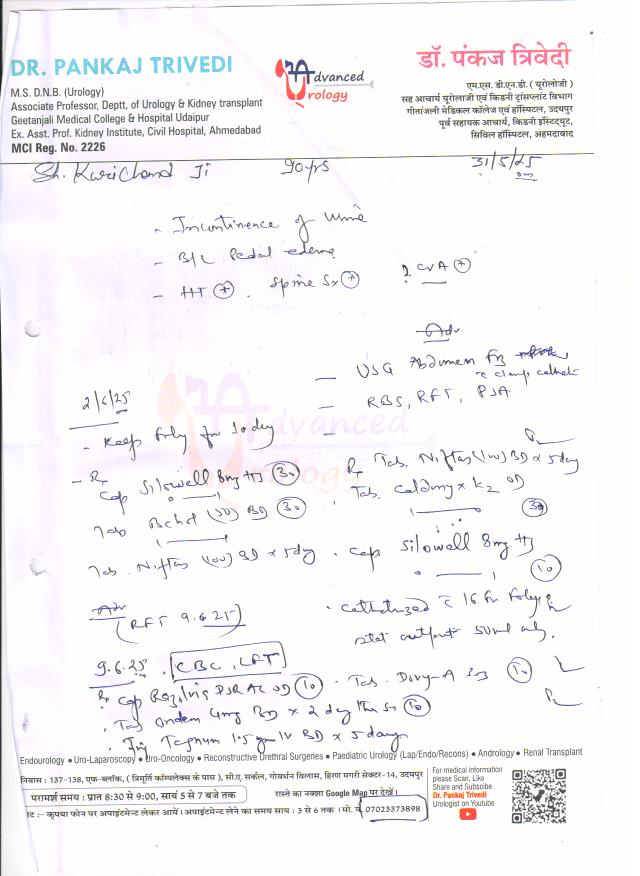 DR. PANKAJ TRIVEDI
M.S. D.N.B. (Urology)
Associate Professor, Deptt, of Urology & Kidney transplant
Geetanjali Medical College & Hospital Udaipur
Ex. Asst. Prof. Kidney Institute, Civil Hospital, Ahmedabad
MCI Reg. No. 2226
Advanced
Urology
डॉ. पंकज त्रिवेदी
एम.एस. डी.एन.बी. ( यूरोलोजी )
सह आचार्य यूरोलाजी एवं किडनी ट्रांसप्लांट विभाग
गीतांजली मेडिकल कॉलेज एवं हॉस्पिटल, उदयपुर
पूर्व सहायक आचार्य, किडनी इंस्टिट्युट,
सिविल हॉस्पिटल, अहमदाबाद
Sh. Ji 90yrs 31/5/25
- Incontinence of urine
- B/L Pedal edema
- HT + . Spine Sx + ? CVA +
Adv
- USG Abdomen
c clamp
- RBS, RFT, PSA
2/6/25
- Keep foly for 10 day
- Rx Cap Silowell 8mg HS 30
Tab (50) BD 30
Tab. Niftas (100) BD x 5 day
Adv
(RFT 9.6.25)
Rx Tab. Niftas (100) BD x 5 day
. Tab. K2 OD
30
. Cap Silowell 8mg HS
10
. Catheterized c 16 Fr Foley
stat output 50ml only.
9.6.25 . CBC, LFT
Rx Cap PSR AC OD 10 . Tab. 10
. Tab Ondem 4mg BD x 2 day 10
. Inj 1.5 gm IV BD x 5 days
Endourology ● Uro-Laparoscopy ● Uro-Oncology ● Reconstructive Urethral Surgeries ● Paediatric Urology (Lap/Endo/Recons) ● Andrology ● Renal Transplant
निवास : 137-138, एफ-ब्लॉक, ( त्रिमूर्ति कॉम्पलेक्स के पास ), सी.ए. सर्कल, गोवर्धन विलास, हिरण मगरी सेक्टर-14, उदयपुर
परामर्श समय : प्रात 8:30 से 9:00, सायं 5 से 7 बजे तक रास्ते का नक्शा Google Map पर देखें।
नोट :- कृपया फोन पर अपाइंटमेन्ट लेकर आयें। अपाइंटमेन्ट लेने का समय सायं : 3 से 6 तक । मो. नं. 07023373898
For medical information
please Scan, Like
Share and Subscibe
Dr. Pankaj Trivedi
Urologist on Youtube